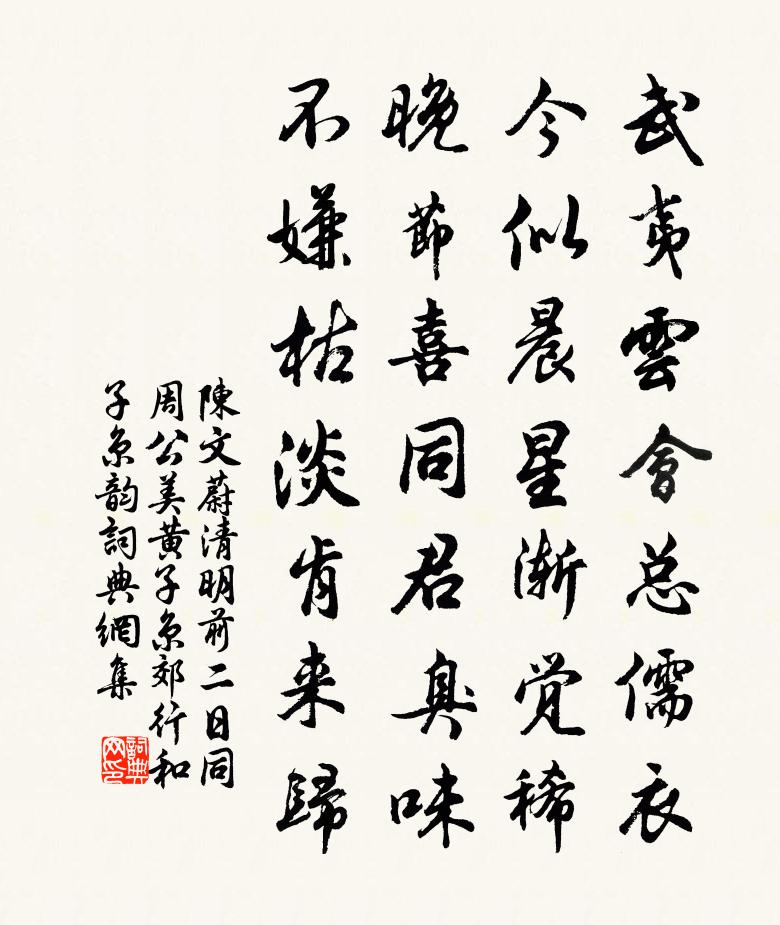 武夷雲會总儒衣
今似晨星渐觉稀
晚節喜同君臭味
不嫌枯淡肯来歸
陳文蔚清明前二日同
周公美黄子京郊行和
子京韵詞典網集
詞典網印